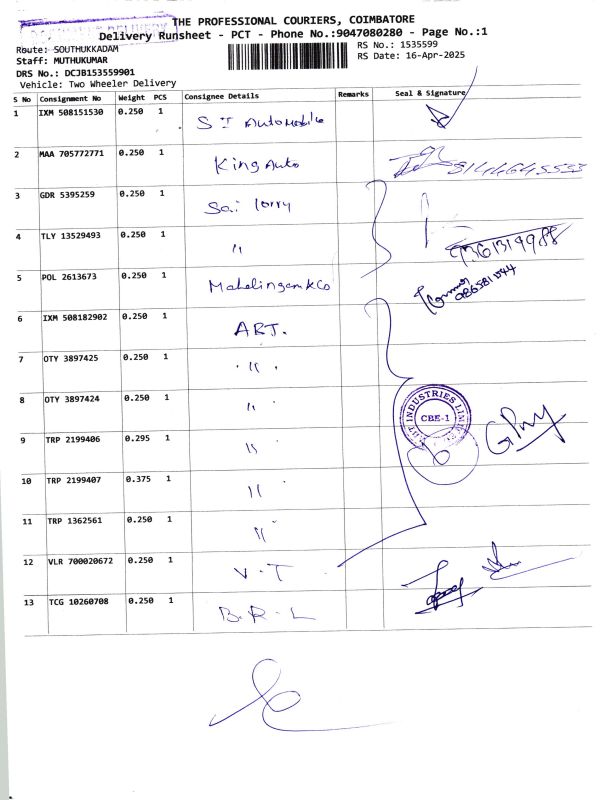 THE PROFESSIONAL COURIERS, COIMBATORE
Delivery Runsheet - PCT - Phone No.:9047080280 - Page No.:1
Route: SOUTHUKKADAM
RS No.: 1535599
Staff: MUTHUKUMAR
RS Date: 16-Apr-2025
DRS No.: DCJB153559901
Vehicle: Two Wheeler Delivery
S No Consignment No Weight PCS Consignee Details Remarks Seal & Signature
1 IXM 508151530 0.250 1 S I Automobile
2 MAA 705772771 0.250 1 King Auto
3 GDR 5395259 0.250 1 Sai lorry
4 TLY 13529493 0.250 1 "
5 POL 2613673 0.250 1 Mahalingam & Co
6 IXM 508182902 0.250 1 ART.
7 OTY 3897425 0.250 1 "
8 OTY 3897424 0.250 1 "
INDUSTRIES
CBE-1
9 TRP 2199406 0.295 1 "
10 TRP 2199407 0.375 1 "
11 TRP 1362561 0.250 1 "
12 VLR 700020672 0.250 1 V.T
13 TCG 10260708 0.250 1 B.R.L